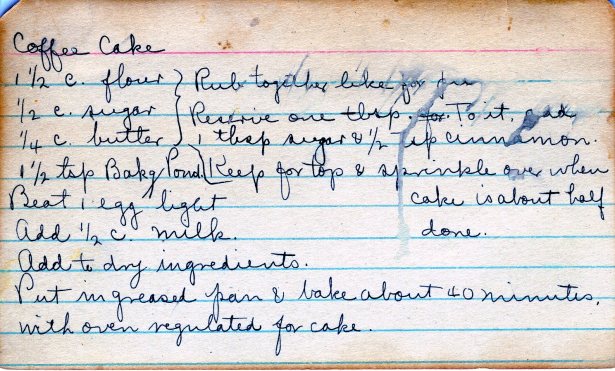 Coffee Cake
1 1/2 c. flour } Rub together like for
1/2 c. sugar } Reserve one tbsp. for. To it, add
1/4 c. butter } 1 tbsp sugar & 1/2 tsp cinnamon.
1 1/2 tsp Bakg Powd. } Keep for top & sprinkle over when
Beat 1 egg light cake is about half
Add 1/2 c. milk. done.
Add to dry ingredients.
Put in greased pan & bake about 40 minutes,
with oven regulated for cake.